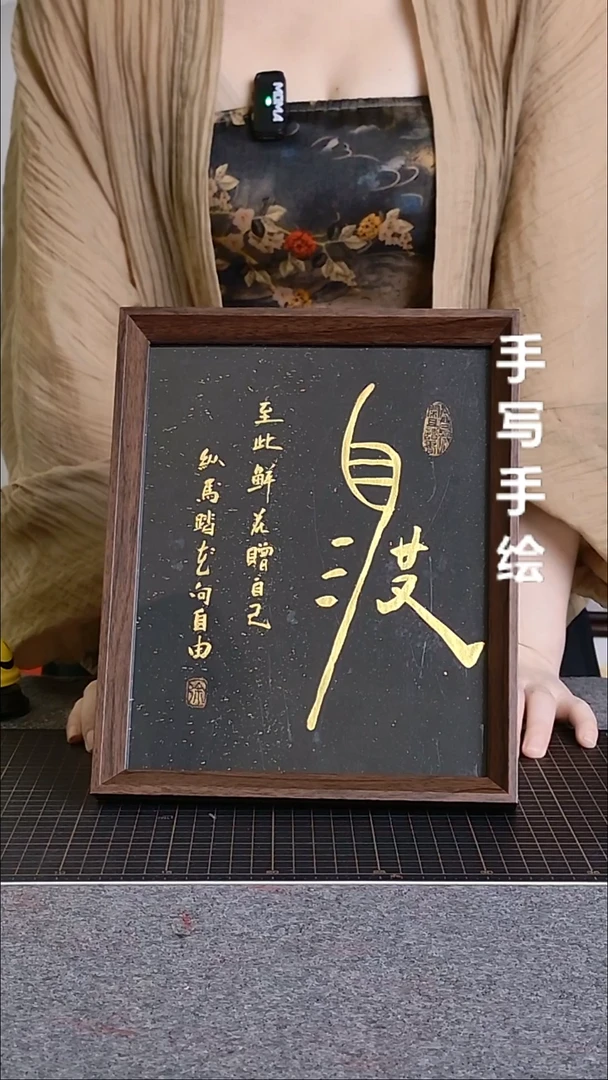 MOMA
手写手绘
自渡
至此鲜花贈自己
纵馬踏花向自由